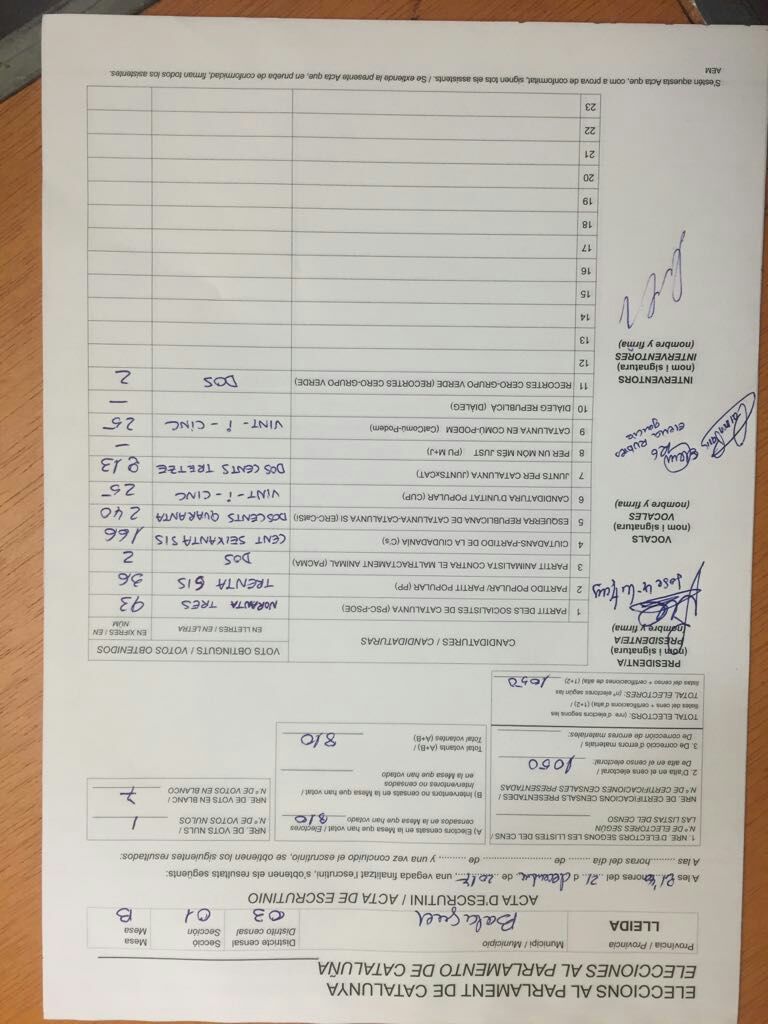 ELECCIONS AL PARLAMENT DE CATALUNYA
ELECCIONES AL PARLAMENTO DE CATALUÑA
Província / Provincia
LLEIDA
Municipi / Municipio
Balaguer
Districte censal
Distrito censal
03
Secció
Sección
01
Mesa
Mesa
B
ACTA D'ESCRUTINI / ACTA DE ESCRUTINIO
A les 21'40 hores del 21 d desembre de 2017, una vegada finalitzat l'escrutini, s'obtenen els resultats següents:
A las ......... horas del día ......... de ......... de ........., y una vez concluido el escrutinio, se obtienen los siguientes resultados:
1. NRE. D'ELECTORS SEGONS LES LLISTES DEL CENS /
N.º DE ELECTORES SEGÚN
LAS LISTAS DEL CENSO
NRE. DE CERTIFICACIONS CENSALS PRESENTADES /
N.º DE CERTIFICACIONES CENSALES PRESENTADAS
2. D'alta en el cens electoral /
De alta en el censo electoral: 1050
3. De correcció d'errors materials /
De corrección de errores materiales:
TOTAL ELECTORS: (nre. d'electors segons les
llistes del cens + certificacions d'alta) (1+2) /
TOTAL ELECTORES: (nº electores según las
listas del censo + certificaciones de alta) (1+2) 1050
A) Electors censats en la Mesa que han votat / Electores
censados en la Mesa que han votado 810
B) Interventors no censats en la Mesa que han votat /
Interventores no censados
en la Mesa que han votado
Total votants (A+B) /
Total votantes (A+B) 810
NRE. DE VOTS NULS /
N.º DE VOTOS NULOS 1
NRE. DE VOTS EN BLANC /
N.º DE VOTOS EN BLANCO 7
PRESIDENT/A
(nom i signatura)
PRESIDENTE/A
(nombre y firma)
VOCALS
(nom i signatura)
VOCALES
(nombre y firma)
elena Rubio
garcia
INTERVENTORS
(nom i signatura)
INTERVENTORES
(nombre y firma)
CANDIDATURES / CANDIDATURAS
VOTS OBTINGUTS / VOTOS OBTENIDOS
EN LLETRES / EN LETRA
EN XIFRES / EN NÚM
1 PARTIT DELS SOCIALISTES DE CATALUNYA (PSC-PSOE) NORANTA TRES 93
2 PARTIDO POPULAR/ PARTIT POPULAR (PP) TRENTA SIS 36
3 PARTIT ANIMALISTA CONTRA EL MALTRACTAMENT ANIMAL (PACMA) DOS 2
4 CIUTADANS-PARTIDO DE LA CIUDADANÍA (C's) CENT SEIXANTA SIS 166
5 ESQUERRA REPUBLICANA DE CATALUNYA-CATALUNYA SÍ (ERC-CatSí) DOSCENTS QUARANTA 240
6 CANDIDATURA D'UNITAT POPULAR (CUP) VINT - i - CINC 25
7 JUNTS PER CATALUNYA (JUNTSxCAT) DOS CENTS TRETZE 213
8 PER UN MÓN MÉS JUST (PUM+J) —
9 CATALUNYA EN COMÚ-PODEM (CatComú-Podem) VINT - i - CINC 25
10 DIÀLEG REPUBLICÀ (DIÀLEG) —
11 RECORTES CERO-GRUPO VERDE (RECORTES CERO-GRUPO VERDE) DOS 2
12
13
14
15
16
17
18
19
20
21
22
23
S'estén aquesta Acta que, com a prova de conformitat, signen tots els assistents. / Se extiende la presente Acta que, en prueba de conformidad, firman todos los asistentes.
AEM